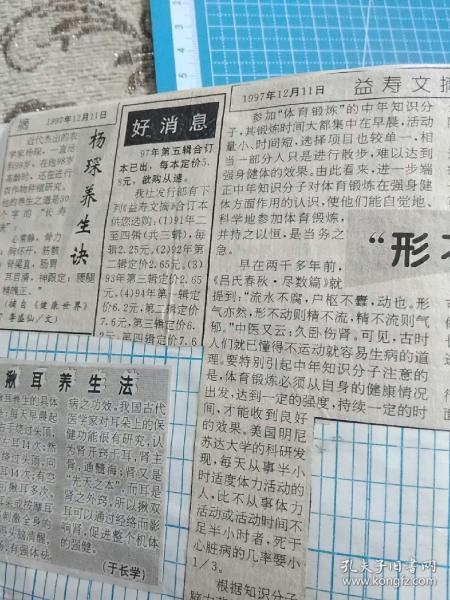 摘
1997年12月11日
杨琛养生诀
近代杰出的农
字的“长寿
心常静，骨力
（摘自《健康世界》
李盛仙/文）
好消息
97年第五辑合订
本已出，每本定价5.
8元，欲购从速。
我社发行部有下
列《益寿文摘》合订本
供您选购，（1）91年二
至四辑（共三辑），每
辑2.25元。（2）92年第
二辑定价2.65元。（3）
93年第三辑定价2.65
元。（4）94年第一辑定
价6.2元，第二辑定价
7.6元，第三辑定价6.
2元，第四辑定价7.6
1997年12月11日
益寿文摘
参加“体育锻炼”的中年知识分
子，其锻炼时间大都集中在早晨，活动
量小、时间短，选择项目也较单一，相
当一部分人只是进行散步，难以达到
强身健体的效果。由此看来，进一步端
正中年知识分子对体育锻炼在强身健
体方面作用的认识，使他们能自觉地、
科学地参加体育锻炼，
并持之以恒，是当务之
急。
“形不
早在两千多年前，
《吕氏春秋·尽数篇》就
提到：“流水不腐，户枢不蠹，动也。形
气亦然，形不动则精不流，精不流则气
郁。”中医又云：久卧伤肾。可见，古时
人们就已懂得不运动就容易生病的道
理。要特别引起中年知识分子注意的
是，体育锻炼必须从自身的健康情况
出发，达到一定的强度，持续一定的时
间，才能收到良好
的效果。美国明尼
苏达大学的科研发
现，每天从事半小
时适度体力活动的
人，比不从事体力
活动或活动时间不
足半小时者，死于
心脏病的几率要小
1/3。
根据知识分子
揪耳养生法
揪耳养生的具体
每天早晨起
右手绕过头顶，
左耳14次；然
绕过头顶，向
耳14次；有空
可揪耳多次。
耳朵或按摩耳
刺激全身的
得头脑清醒、
，有强体祛
病之功效。我国古代
医学家对耳朵上的保
健功能很有研究，认
为肾开窍于耳，肾主
骨，通髓海；肾又是
“先天之本”，而耳是
肾之外窍，所以揪双
耳可以通过经络而影
响肾，促进整个机体
的强健。
（于长学）
孔夫子旧书网